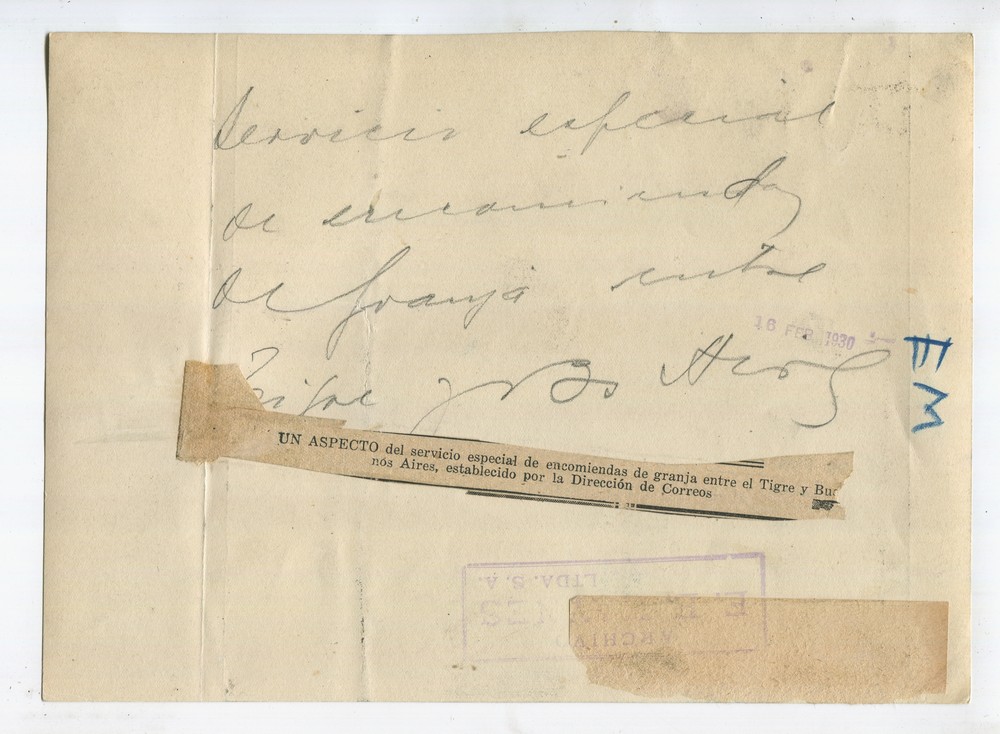 Servicio especial
de encomiendas
de granja entre
Tigre y Bs Aires
18 FEB. 1930
EM
UN ASPECTO del servicio especial de encomiendas de granja entre el Tigre y Bue
nos Aires, establecido por la Dirección de Correos
ARCHIVO
LTDA. S. A.